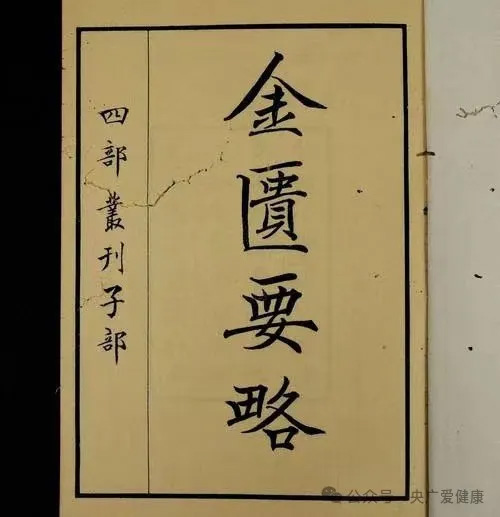 金匱要略
四部叢刊子部
公众号·央广爱健康